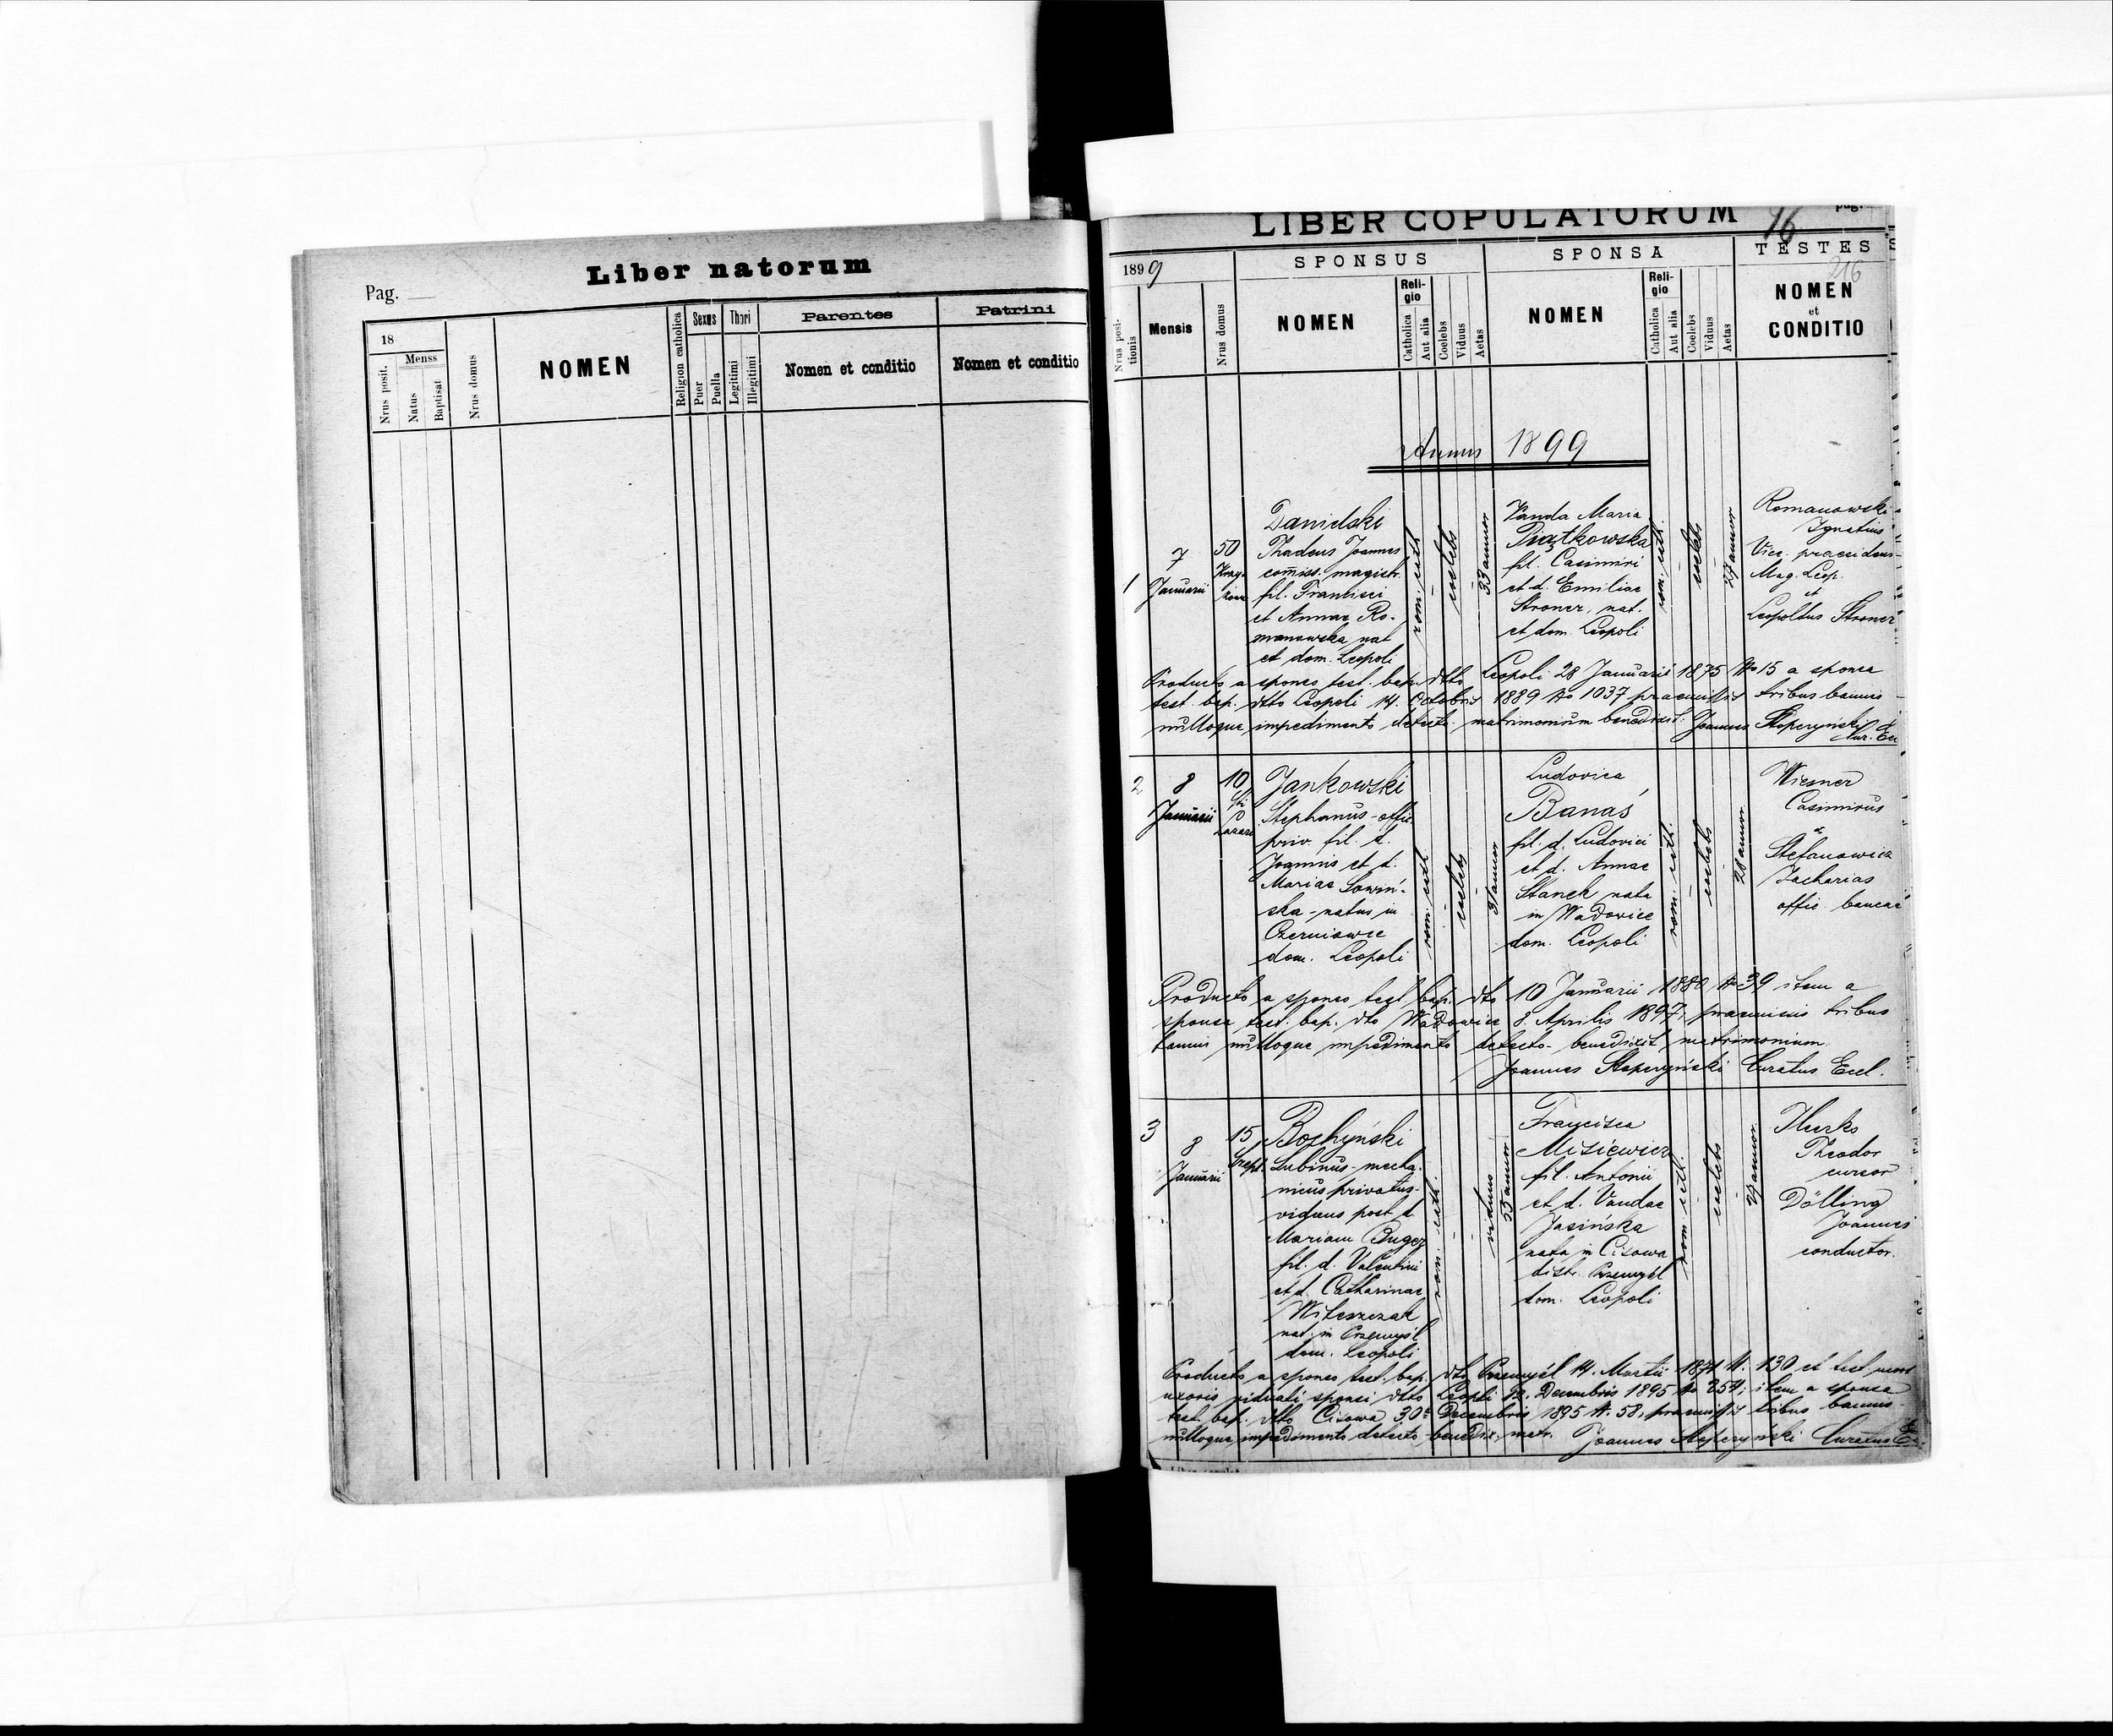 Liber natorum
Pag.
18
Nrus posit.
Menss
Natus
Baptisat
Nrus domus
NOMEN
Religion catholica
Sexus
Puer
Puella
Thori
Legitimi
Illegitimi
Parentes
Nomen et conditio
Patrini
Nomen et conditio
LIBER COPULATORUM
pag.
16
216
1899
Nrus posi-
tionis
Mensis
Nrus domus
SPONSUS
NOMEN
Reli-
gio
Catholica
Aut alia
Coelebs
Viduus
Aetas
SPONSA
NOMEN
Reli-
gio
Catholica
Aut alia
Coelebs
Viduus
Aetas
TESTES
NOMEN
et
CONDITIO
Annus 1899
1
7
Januarii
50
Danielski
Thadeus Joannes
comiss. magistr.
fil. Francisci
et Annae Ro-
manowska nat
et dom. Leopoli
rom. cath
coelebs
33 annor
Vanda Maria
Piątkowska
fil. Casimiri
et d. Emiliae
Stroner, nat.
et dom. Leopoli
rom. cath.
coelebs
annor
Romanowski
Ignatius
Vice praesidens
Mag. Leop.
et
Leopoldus Stroner
Producto a sponso test. bap. dtto Leopoli 28 Januarii 1875 No 15 a sponsa
test. bap. dtto Leopoli 14. Octobris 1889 No 1037 praemissis tribus bannis
nulloque impedimento detecto matrimonium benedixit: Joannes
2
8
Januarii
10
Sti
Lazari
Jankowski
Stephanus - offic.
priv. fil. d.
Joannis et d.
Mariae Sowiń-
ska - natus in
Czerniowce
dom. Leopoli
rom. cath
coelebs
31 annor
Ludovica
Banaś
fil. d. Ludovici
et d. Annae
Stanek nata
in Wadowice
dom. Leopoli
rom. cath.
coelebs
28 annor
Wiesner
Casimirus
et
Stefanowicz
Zacharias
offic. bancae
Producto a sponso test. bap. dto 10 Januarii 1880 No 39 item a
sponsa test. bap. dto Wadowice 8. Aprilis 1897; praemissis tribus
bannis nulloque impedimento detecto - benedixit matrimonium.
Joannes Curatus Eccl.
3
8
Januarii
15
Albinus - mecha-
nicus privatus -
viduus post d.
Mariam
fil. d. Valentini
et d. Catharinae
nat. in Przemyśl
dom. Leopoli
rom. cath.
viduus
55 annor
Francisca
Misiewicz
fil. Antonii
et d. Vandae
Jasińska
nata in Cisowa
distr. Przemyśl
dom. Leopoli
rom. cath.
coelebs
annor
Hurko
Theodor
cursor
Dölling
Joannes
conductor.
Producto a sponso test. bap. dto Przemyśl 14. Martii 1871 N. 130 et test. mort
uxoris viduati sponsi dtto Leopoli Decembris 1895 No item a sponsa
test. bap. dtto Cisowa 30 Decembris 1895 N. 58, praemissis tribus bannis
nulloque impedimento detecto - benedix. matr. Joannes Curatus